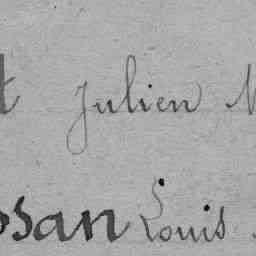 t Julien M
osan Louis